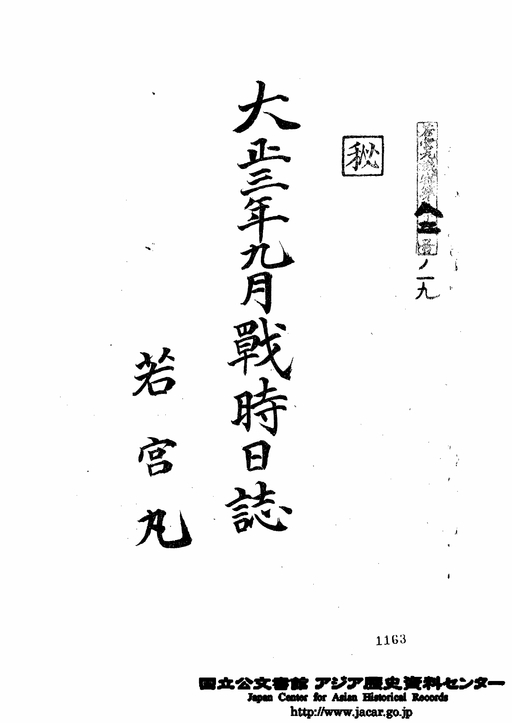 若宮丸機密第八三號ノ一九
秘
大正三年九月戰時日誌
若宮丸
1163
国立公文書館 アジア歴史資料センター
Japan Center for Asian Historical Records
http://www.jacar.go.jp